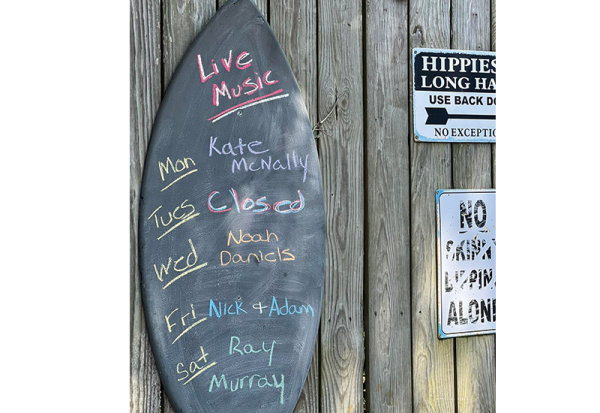 Live
Music
Mon
Kate
McNally
Tues
Closed
Wed
Noah
Daniels
Fri
Nick & Adam
Sat
Ray
Murray
HIPPIES
LONG HA
USE BACK DO
NO EXCEPTIO
NO
SKINNY
DIPPIN
ALONE